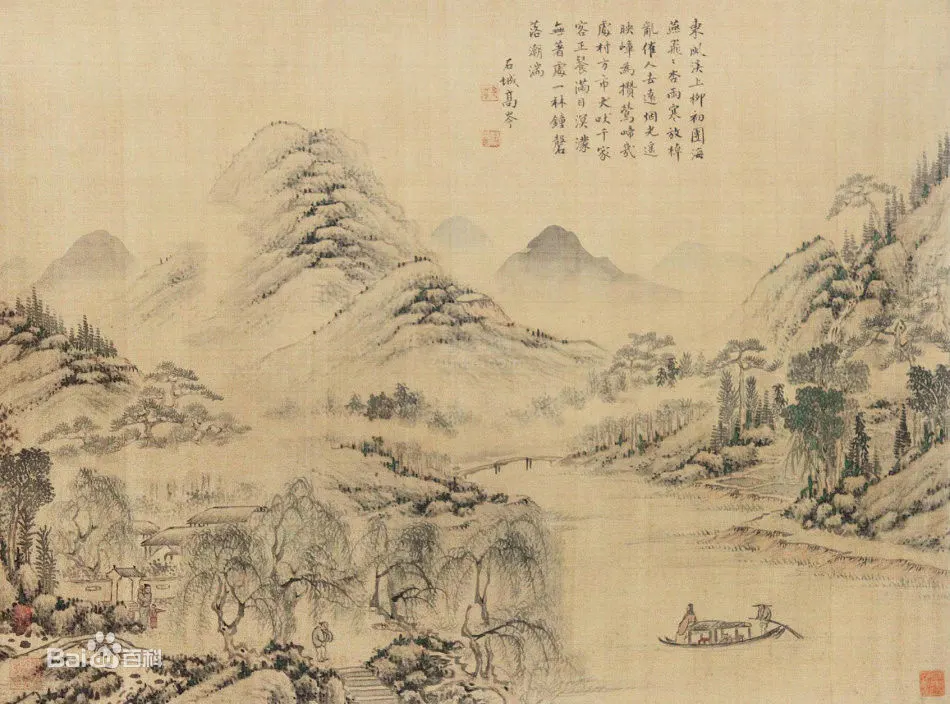 東風溪上柳初團海
燕飛〻杏雨寒放棹
亂催人去遠烟光遙
映嶂為攢鶯啼幾
處村方市犬吠千家
客正餐滿目溟濛
無著處一林鐘磬
落潮湍
石城高岑
Bai百科